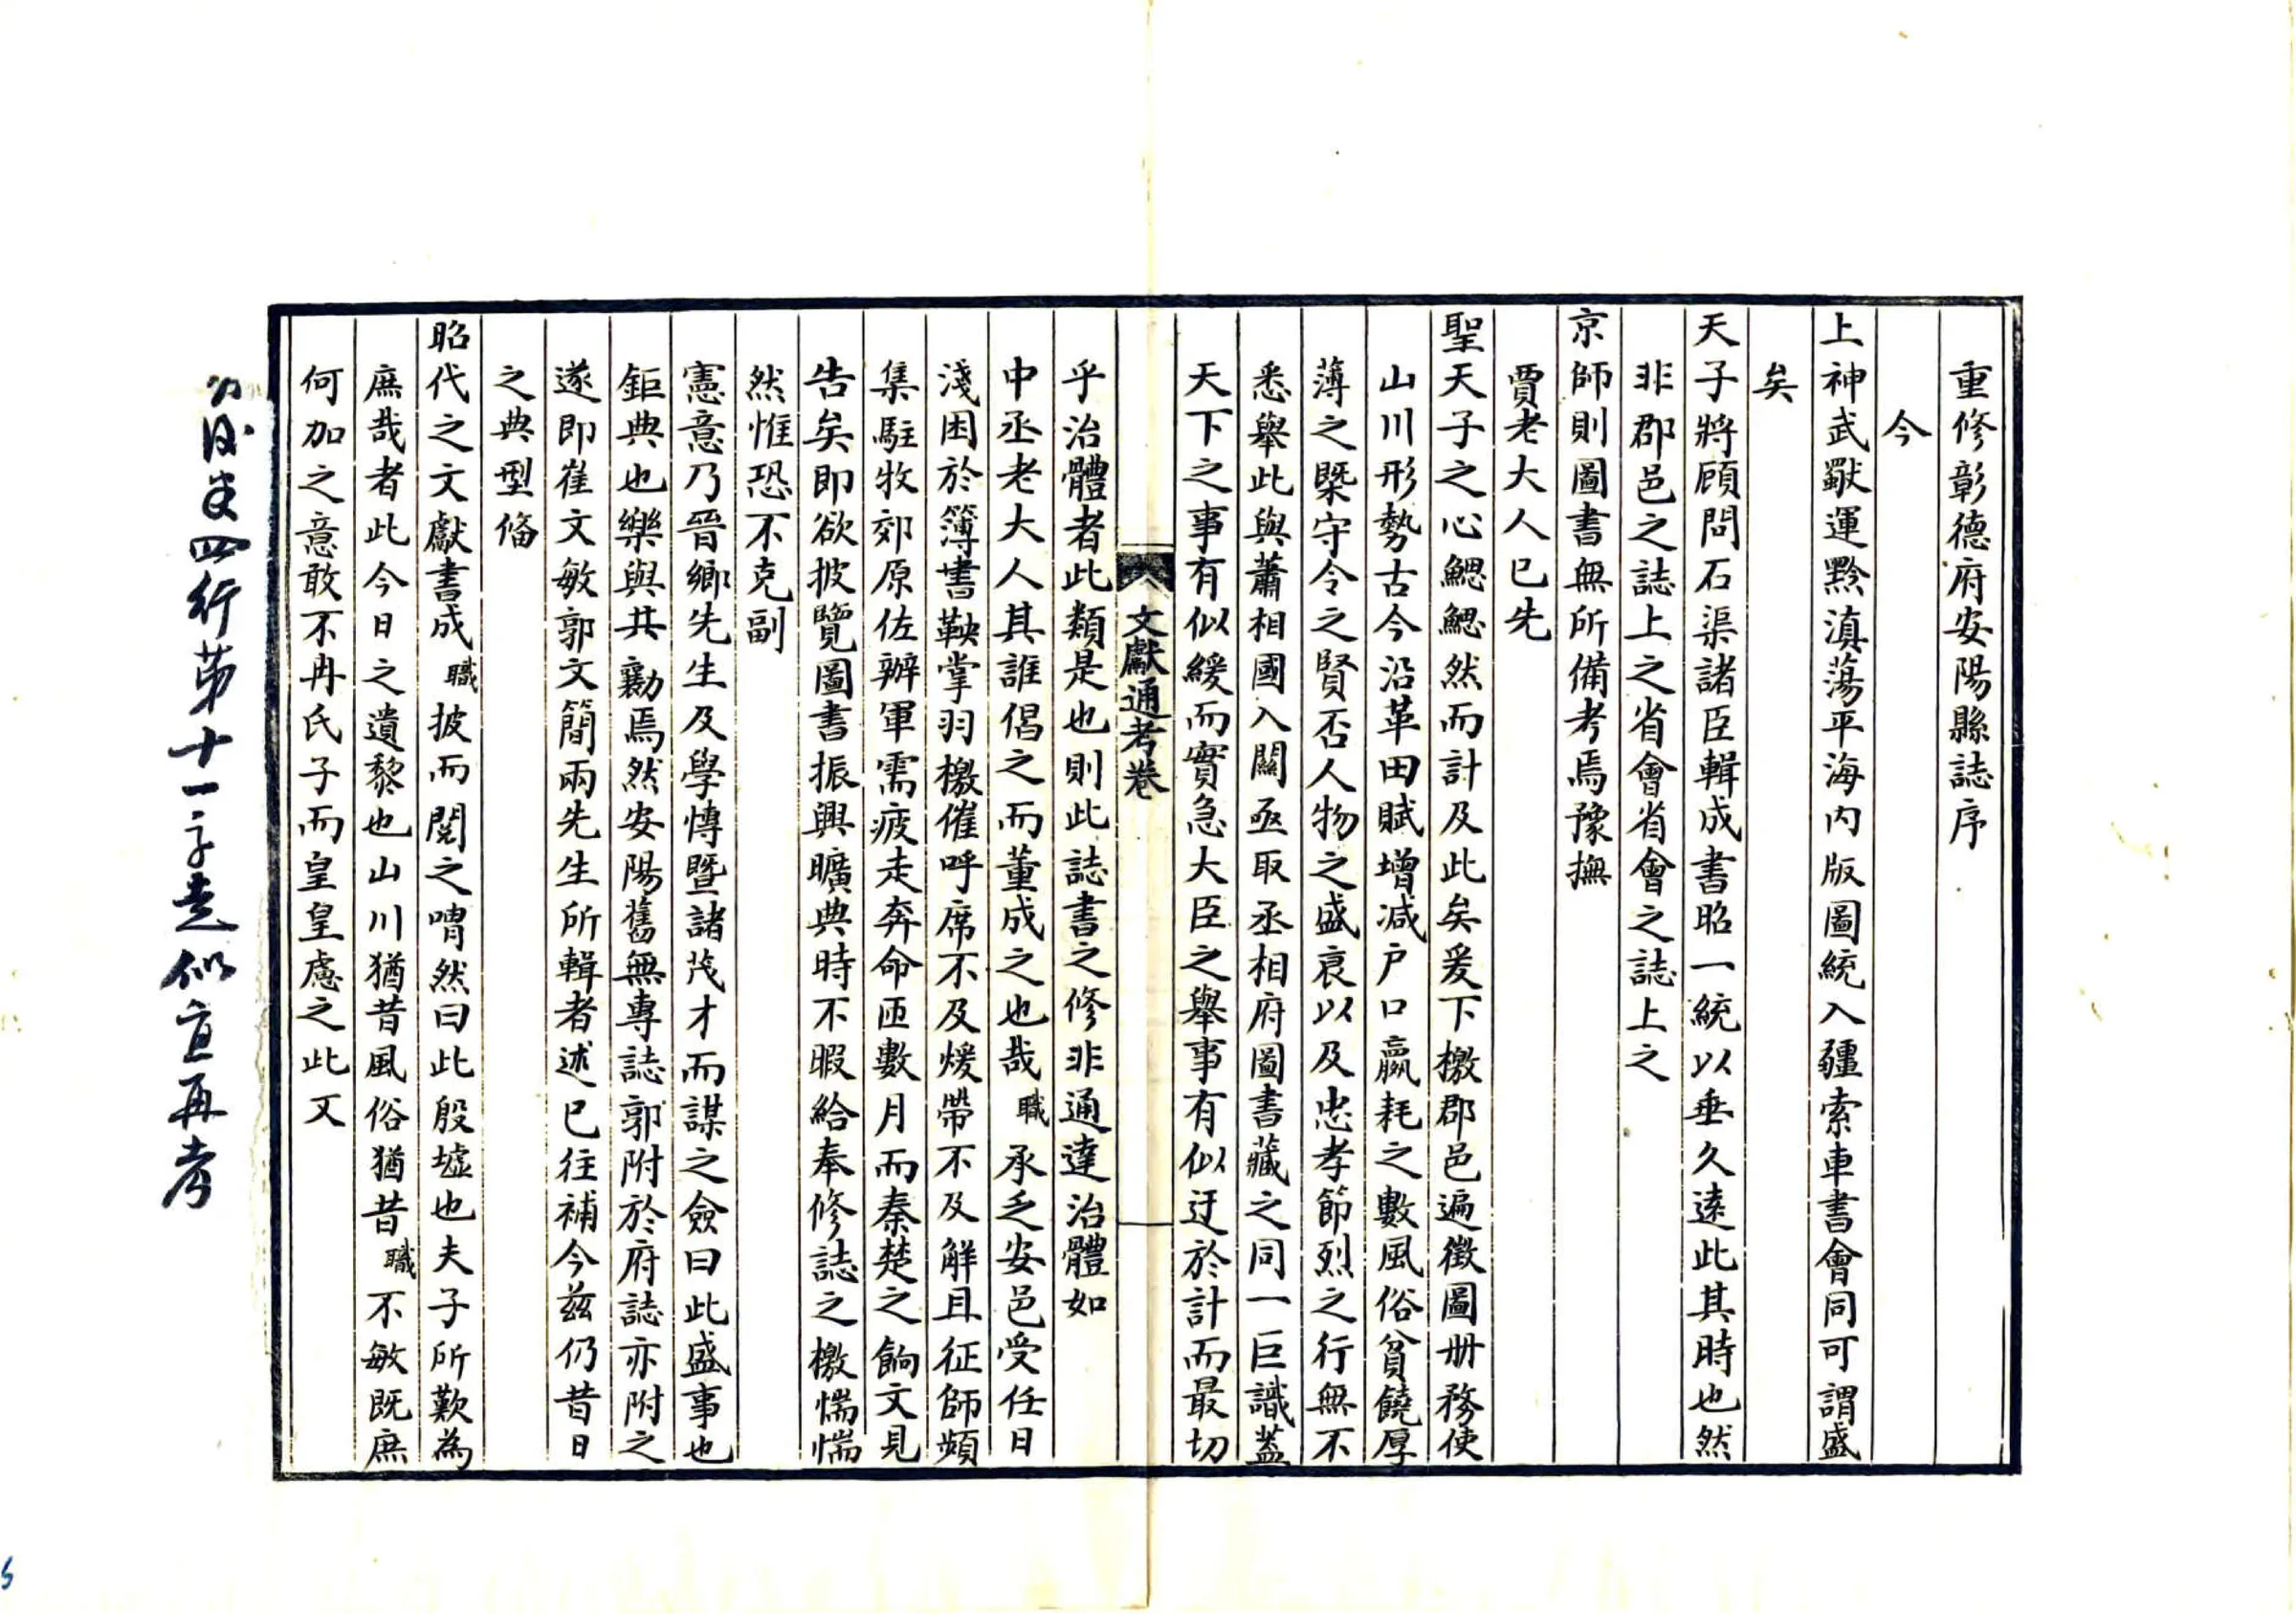 重修彰德府安陽縣誌序
今
上神武獸運黔滇蕩平海内版圖統入疆索車書會同可謂盛
矣
天子將顧問石渠諸臣輯成書昭一統以垂久遠此其時也然
非郡邑之誌上之省會省會之誌上之
京師則圖書無所備考焉豫撫
賈老大人已先
聖天子之心鰓鰓然而計及此矣爰下檄郡邑遍徵圖册務使
山川形勢古今沿革田賦增减户口贏耗之數風俗貧饒厚
薄之槩守令之賢否人物之盛衰以及忠孝節烈之行無不
悉舉此與蕭相國入關亟取丞相府圖書藏之同一巨識蓋
天下之事有似緩而實急大臣之舉事有似迂於計而最切
文獻通考卷
乎治體者此類是也則此誌書之修非通達治體如
中丞老大人其誰倡之而董成之也哉職承乏安邑受任日
淺困於簿書鞅掌羽檄催呼席不及煖帶不及解且征師頻
集駐牧郊原佐辦軍需疲走奔命匝數月而秦楚之餉文見
告矣即欲披覽圖書振興曠典時不暇給奉修誌之檄惴惴
然惟恐不克副
憲意乃晉鄉先生及學慱暨諸茂才而謀之僉曰此盛事也
鉅典也樂與共勷焉然安陽舊無專誌郭附於府誌亦附之
遂即崔文敏郭文簡兩先生所輯者述已往補今兹仍昔日
之典型俻
昭代之文獻書成職披而閱之喟然曰此殷墟也夫子所歎為
庶哉者此今日之遺黎也山川猶昔風俗猶昔職不敏既庶
何加之意敢不冉氏子而皇皇慮之此文
四行第十一字走似宜再考